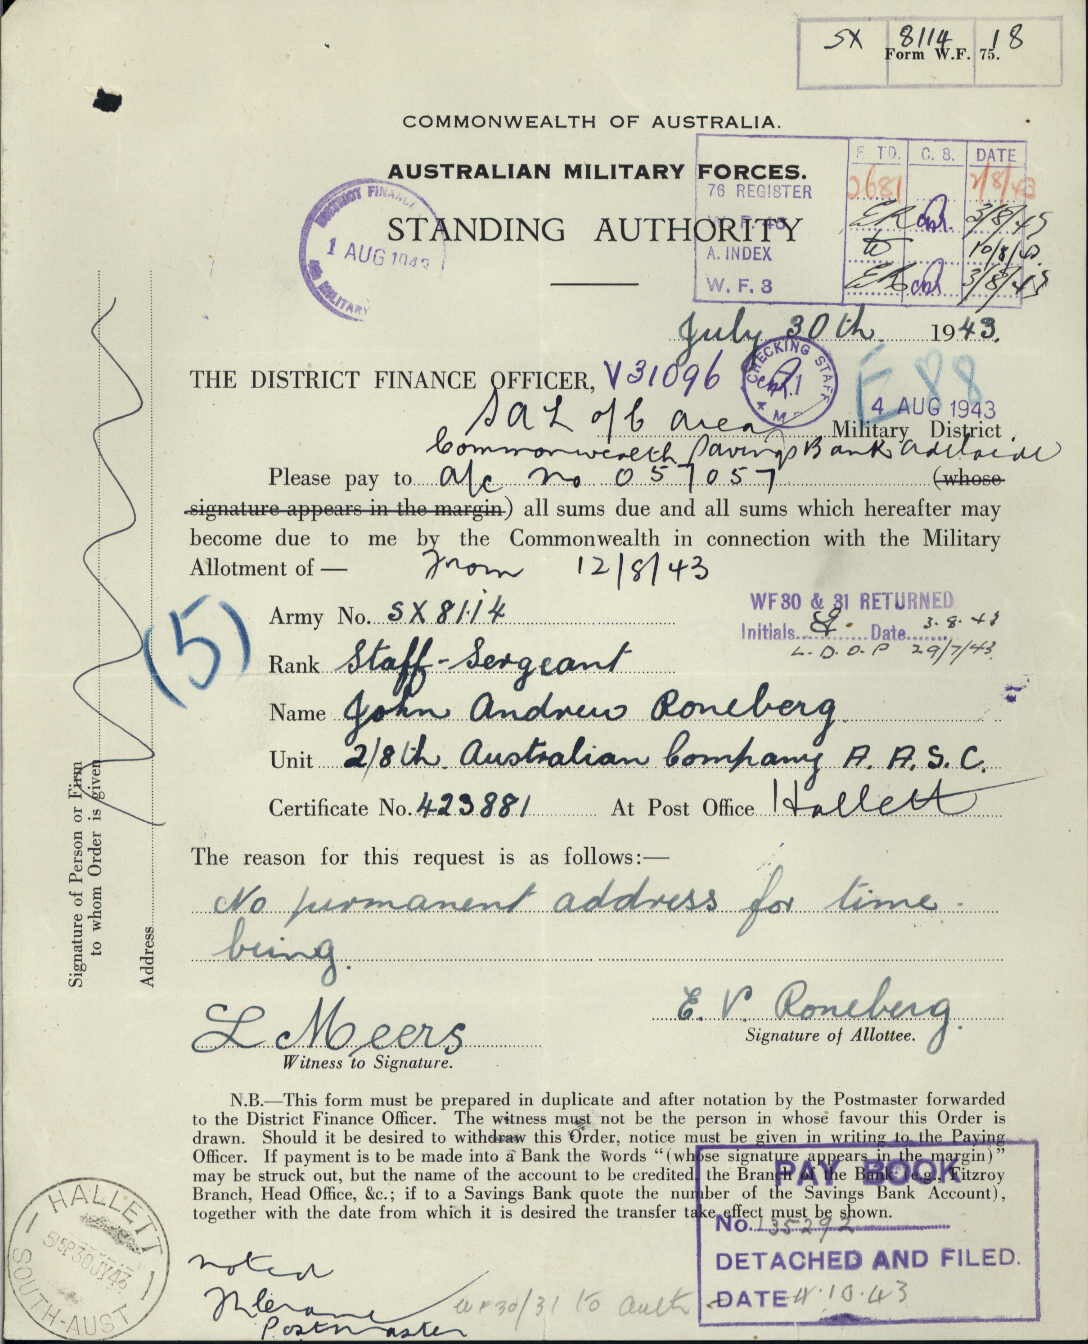 SX 8114 18
Form W.F. 75.
COMMONWEALTH OF AUSTRALIA.
AUSTRALIAN MILITARY FORCES.
STANDING AUTHORITY
DISTRICT FINANCE
1 AUG 1943
MILITARY
F TD. C. B. DATE
76 REGISTER 2681 2/8/43
W. F. 46 ER 3/8/43
A. INDEX 10/8/43
W. F. 3 ER 3/8/43
July 30th 1943.
THE DISTRICT FINANCE OFFICER, V31096
CHECKING STAFF
4 M.D.
E 88
4 AUG 1943
S A L of C Area Military District.
Commonwealth Savings Bank Adelaide
Please pay to a/c No 057057 (whose
signature appears in the margin) all sums due and all sums which hereafter may
become due to me by the Commonwealth in connection with the Military
Allotment of — From 12/8/43
Army No. SX 8114
WF30 & 31 RETURNED
Initials Date 3.8.43
L.D.O.P 29/7/43
(5)
Rank Staff-Sergeant
Name John Andrew Roneberg
Unit 2/8th Australian Company A.A.S.C.
Certificate No. 423881 At Post Office Hallett
Signature of Person or Firm
to whom Order is given
Address
The reason for this request is as follows:—
No permanent address for time
being.
E. V. Roneberg.
Signature of Allottee.
L Meers
Witness to Signature.
N.B.—This form must be prepared in duplicate and after notation by the Postmaster forwarded
to the District Finance Officer. The witness must not be the person in whose favour this Order is
drawn. Should it be desired to withdraw this Order, notice must be given in writing to the Paying
Officer. If payment is to be made into a Bank the words "(whose signature appears in the margin)"
may be struck out, but the name of the account to be credited, the Branch of the Bank (e.g., Fitzroy
Branch, Head Office, &c.; if to a Savings Bank quote the number of the Savings Bank Account),
together with the date from which it is desired the transfer take effect must be shown.
PAY BOOK
No. 135292
DETACHED AND FILED.
DATE 4.10.43
HALLETT
30JY43
SOUTH-AUST
noted
Postmaster
WF30/31 to Auth